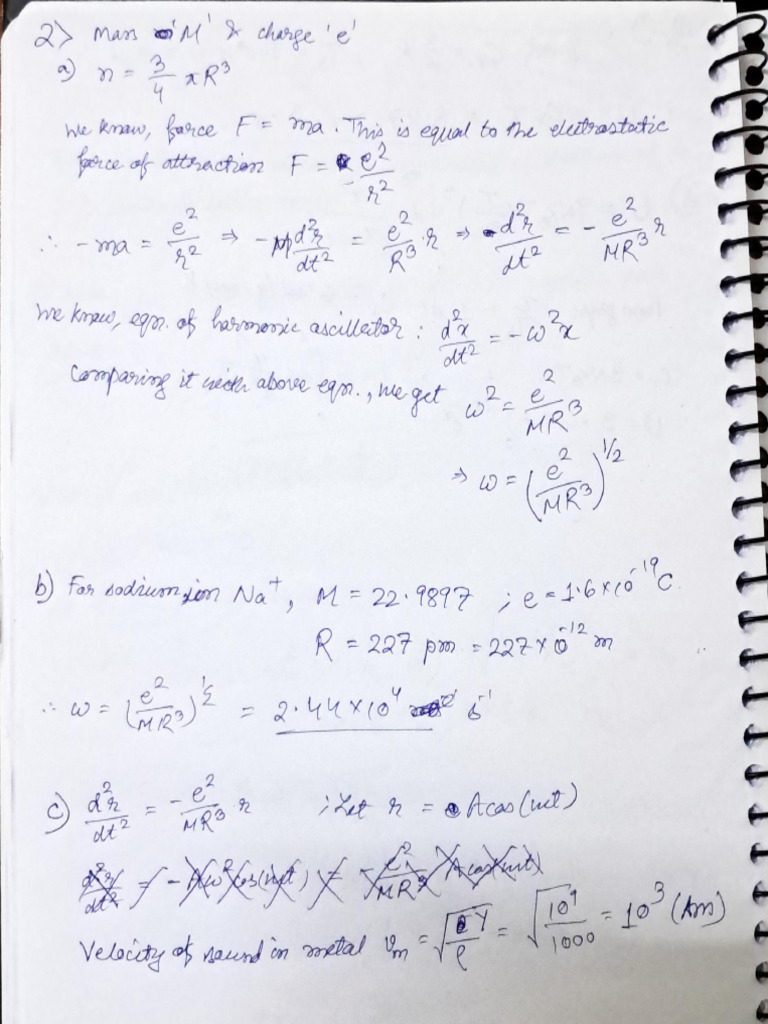 2> Mass 'M' & charge 'e'
a) n = 3/4 πR³
We know, force F = ma. This is equal to the electrostatic
force of attraction F = - e²/r²
∴ -ma = e²/r² ⇒ -M d²r/dt² = e²/R³ · r ⇒ d²r/dt² = - e²/MR³ r
We know, eqn. of harmonic oscillator : d²x/dt² = -ω²x
Comparing it with above eqn., we get ω² = e²/MR³
⇒ ω = (e²/MR³)^1/2
b) For sodium ion Na⁺, M = 22.9897 ; e = 1.6×10⁻¹⁹ C
R = 227 pm = 227×10⁻¹² m
∴ ω = (e²/MR³)^1/2 = 2.44×10⁴ s⁻¹
c) d²r/dt² = -e²/MR³ r ; Let r = A cos(ωt)
Velocity of sound in metal v_m = √(Y/ρ) = √(10⁹/1000) = 10³ (km)